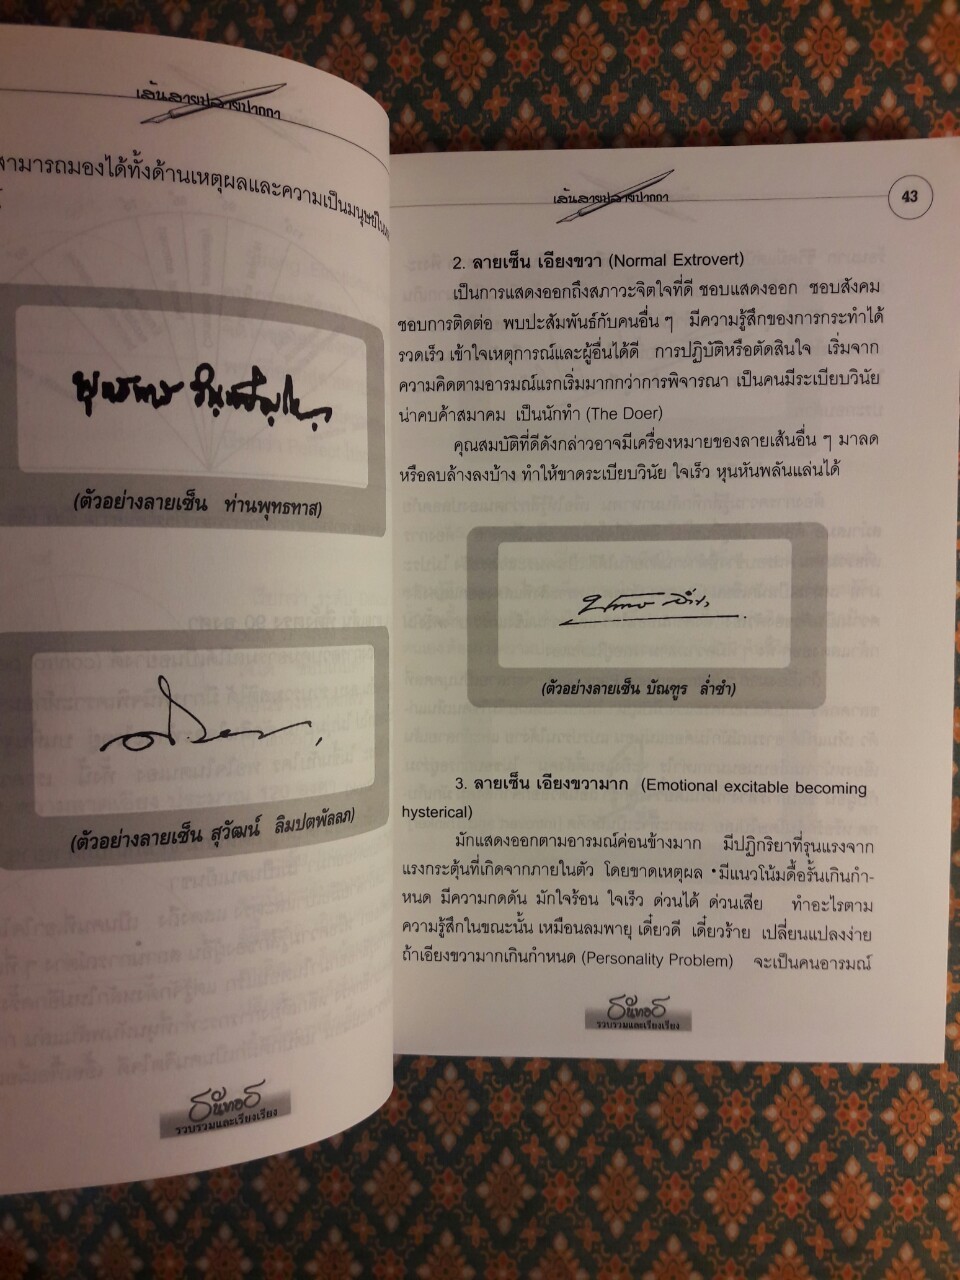 เส้นสายปลายปากกา
สามารถมองได้ทั้งด้านเหตุผลและความเป็นมนุษย์ใน
(ตัวอย่างลายเซ็น ท่านพุทธทาส)
(ตัวอย่างลายเซ็น สุวัฒน์ ลิมปตพัลลภ)
รวบรวมและเรียงเรียง
เส้นสายปลายปากกา
43
2. ลายเซ็น เอียงขวา (Normal Extrovert)
เป็นการแสดงออกถึงสภาวะจิตใจที่ดี ชอบแสดงออก ชอบสังคม
ชอบการติดต่อ พบปะสัมพันธ์กับคนอื่น ๆ มีความรู้สึกของการกระทำได้
รวดเร็ว เข้าใจเหตุการณ์และผู้อื่นได้ดี การปฏิบัติหรือตัดสินใจ เริ่มจาก
ความคิดตามอารมณ์แรกเริ่มมากกว่าการพิจารณา เป็นคนมีระเบียบวินัย
น่าคบค้าสมาคม เป็นนักทำ (The Doer)
คุณสมบัติที่ดีดังกล่าวอาจมีเครื่องหมายของลายเส้นอื่น ๆ มาลด
หรือลบล้างลงบ้าง ทำให้ขาดระเบียบวินัย ใจเร็ว หุนหันพลันแล่นได้
(ตัวอย่างลายเซ็น บัณฑูร ล่ำซำ)
3. ลายเซ็น เอียงขวามาก (Emotional excitable becoming
hysterical)
มักแสดงออกตามอารมณ์ค่อนข้างมาก มีปฏิกริยาที่รุนแรงจาก
แรงกระตุ้นที่เกิดจากภายในตัว โดยขาดเหตุผล มีแนวโน้มดื้อรั้นเกินกำ-
หนด มีความกดดัน มักใจร้อน ใจเร็ว ด่วนได้ ด่วนเสีย ทำอะไรตาม
ความรู้สึกในขณะนั้น เหมือนลมพายุ เดี๋ยวดี เดี๋ยวร้าย เปลี่ยนแปลงง่าย
ถ้าเอียงขวามากเกินกำหนด (Personality Problem) จะเป็นคนอารมณ์
รวบรวมและเรียงเรียง